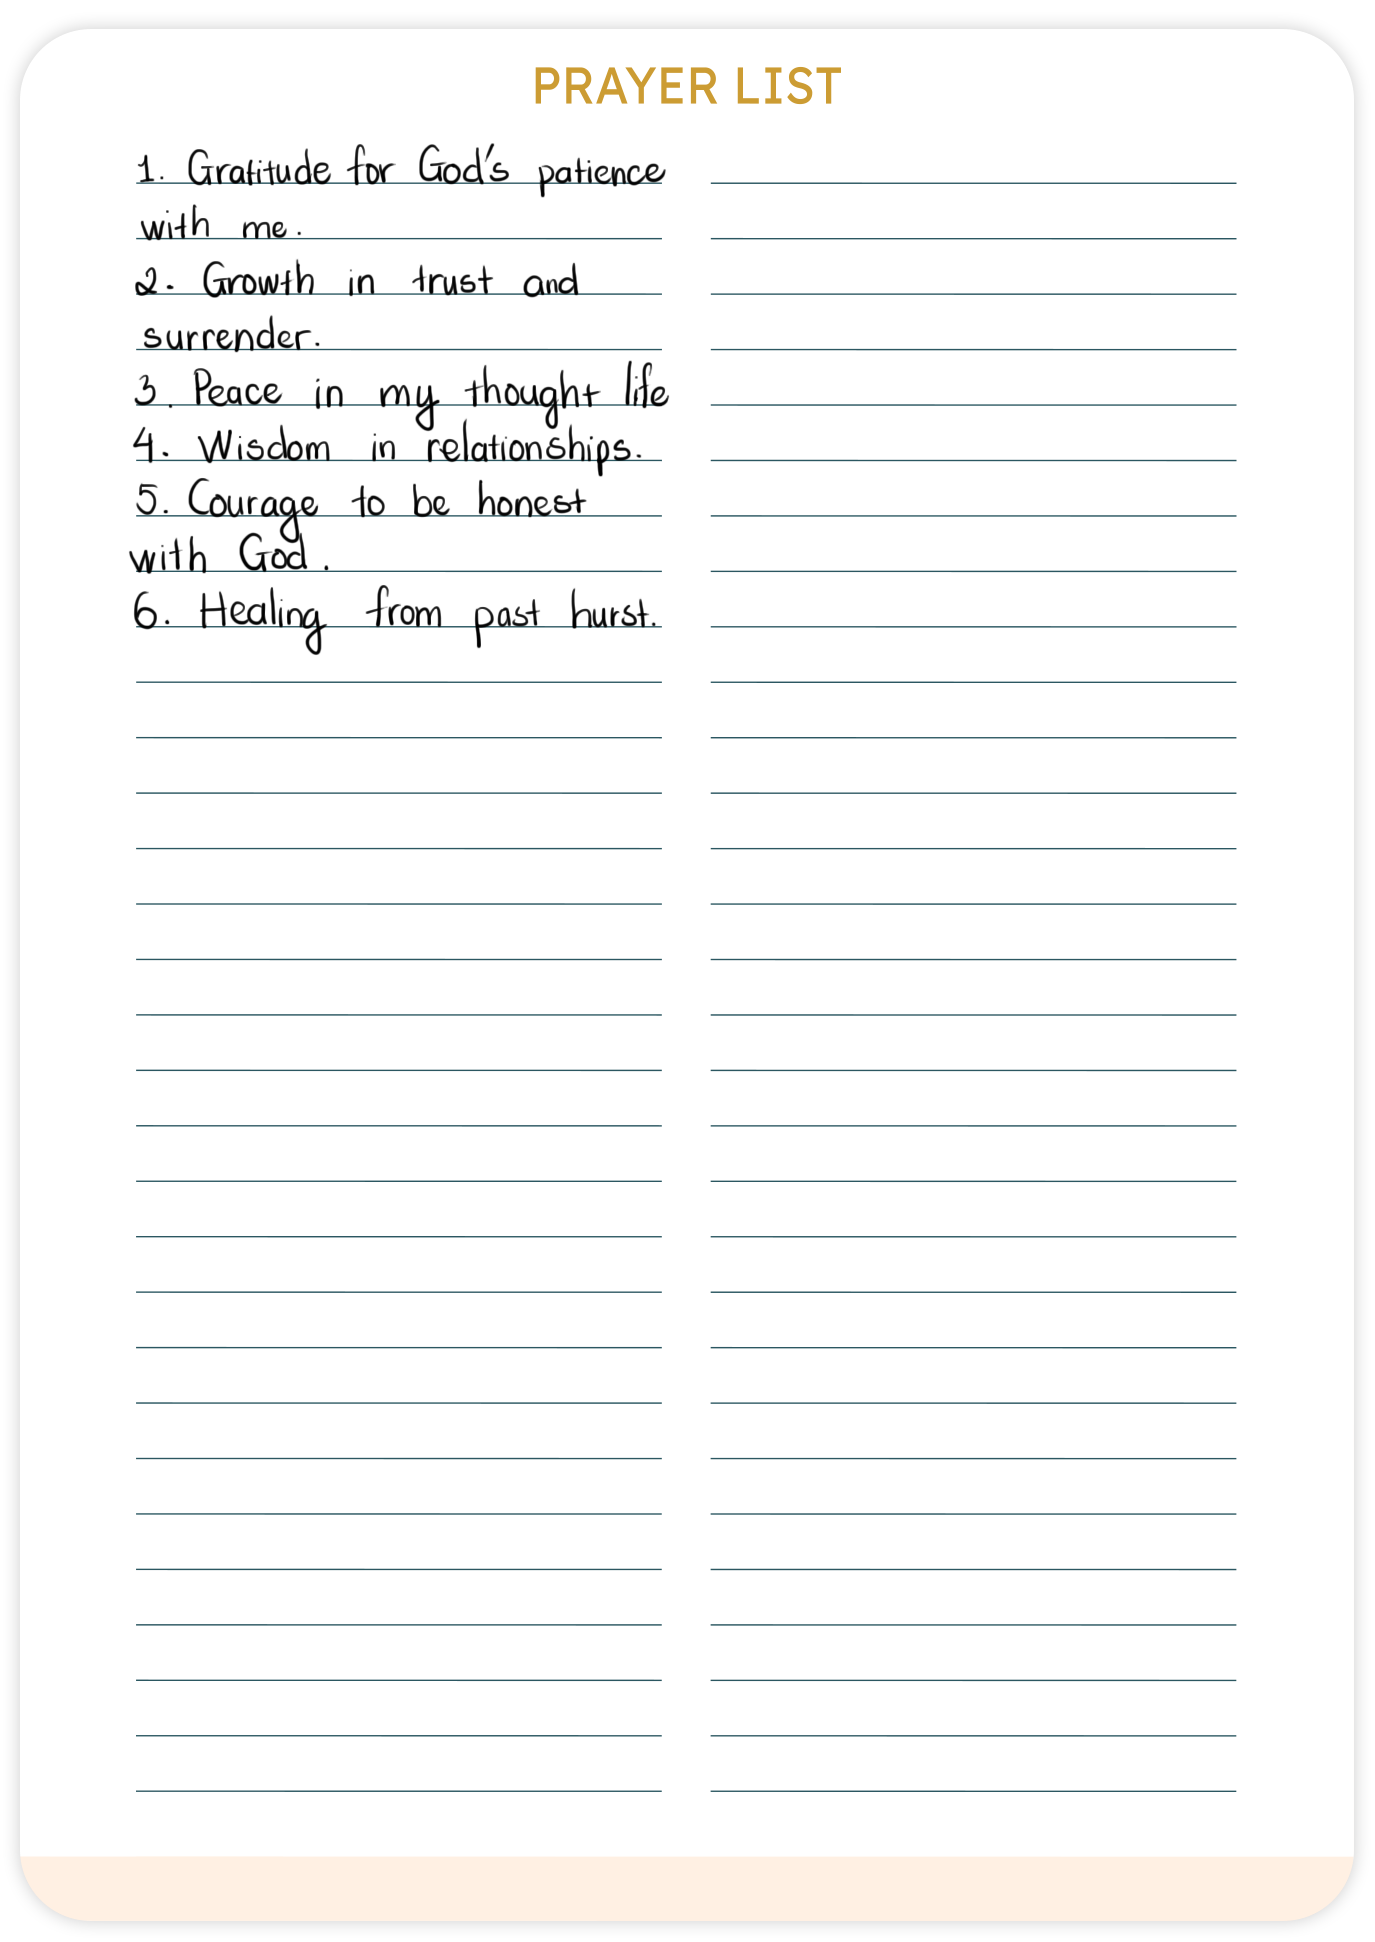 PRAYER LIST
1. Gratitude for God's patience
with me.
2. Growth in trust and
surrender.
3. Peace in my thought life
4. Wisdom in relationships.
5. Courage to be honest
with God.
6. Healing from past hurst.